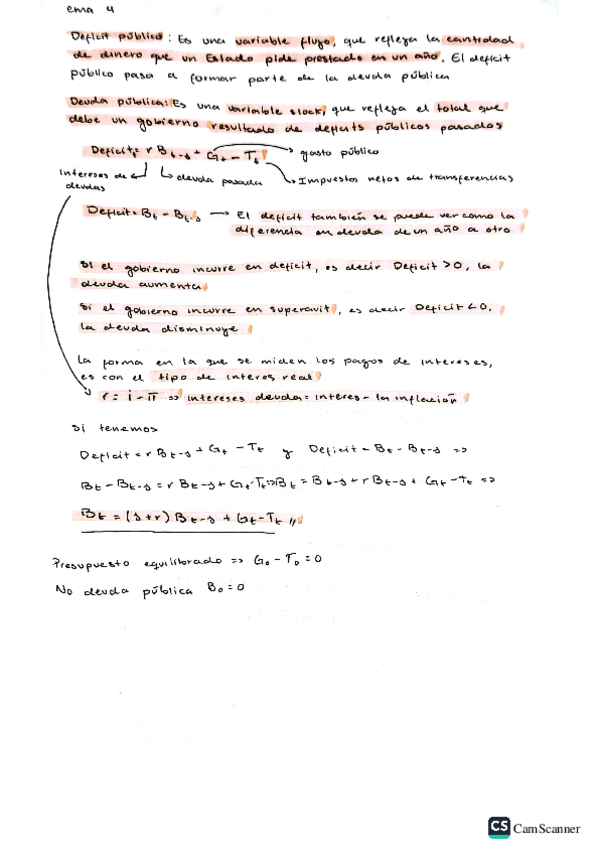 ema 4
Deficit público: Es una variable flujo, que refleja la cantidad
de dinero que un Estado pide prestado en un año. El deficit
público pasa a formar parte de la deuda pública
Deuda pública: Es una variable stock, que refleja el total que
debe un gobierno resultado de deficits públicos pasados
Deficit_t = r B_{t-1} + G_t - T_t → gasto público
Intereses de deudas
deuda pasada
Impuestos netos de transferencias
Deficit = B_t - B_{t-1} → El deficit también se puede ver como la
diferencia en deuda de un año a otro
Si el gobierno incurre en deficit, es decir Deficit > 0, la
deuda aumenta
Si el gobierno incurre en superavit, es decir Deficit < 0,
la deuda disminuye
La forma en la que se miden los pagos de intereses,
es con el tipo de interes real
r = i - π ⇒ intereses deuda = interes - la inflación
Si tenemos
Deficit = r B_{t-1} + G_t - T_t y Deficit = B_t - B_{t-1} ⇒
B_t - B_{t-1} = r B_{t-1} + G_t - T_t ⇒ B_t = B_{t-1} + r B_{t-1} + G_t - T_t ⇒
B_t = (1+r) B_{t-1} + G_t - T_t //
Presupuesto equilibrado ⇒ G_0 - T_0 = 0
No deuda pública B_0 = 0
CS CamScanner